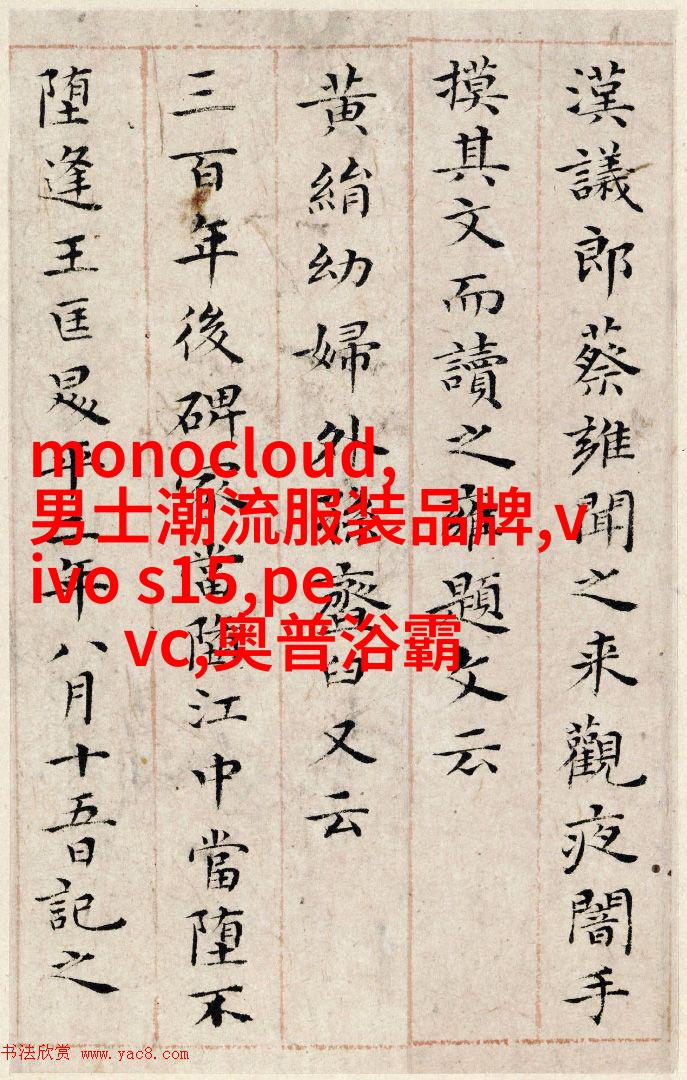 漢議郎蔡雍聞之来觀夜闇手
摸其文而讀之雍題文云
黄絹幼婦外孫齏臼又云
三百年後碑冢當墮江中當墮不
墮逢王匡昇平二年八月十五日記之
monocloud,
男士潮流服装品牌,v
ivo s15,pe
vc,奥普浴霸
书法欣赏 www.yac8.com